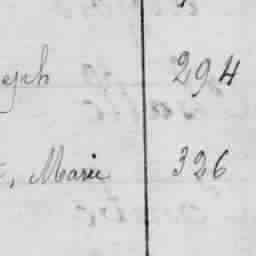 eph 294
, Marie 326